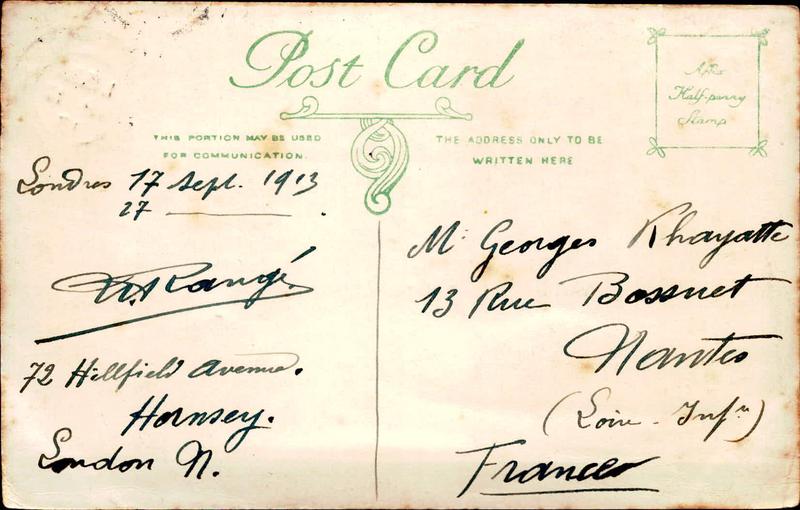 Post Card
THIS PORTION MAY BE USED
FOR COMMUNICATION.
THE ADDRESS ONLY TO BE
WRITTEN HERE
Affix
Half-penny
Stamp
Londres 17 Sept. 1913
27
Rangé
72 Hillfield Avenue.
Hornsey.
London N.
Mr Georges Khayatte
13 Rue Bossuet
Nantes
(Loire-Infre)
France